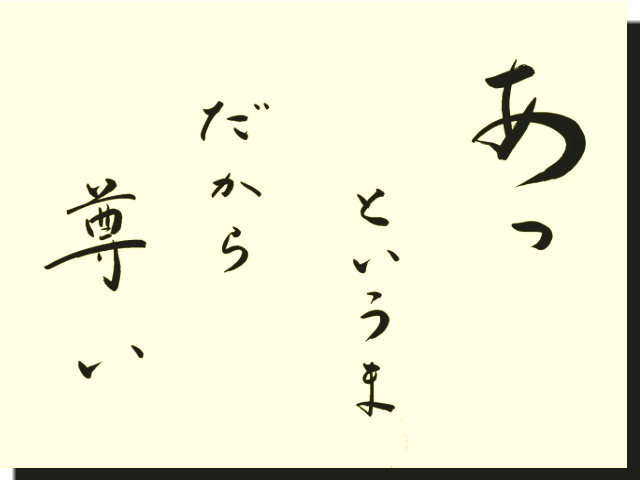 あっ
というま
だから
尊い